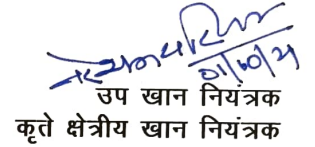 01/10/21
उप खान नियंत्रक
कृते क्षेत्रीय खान नियंत्रक